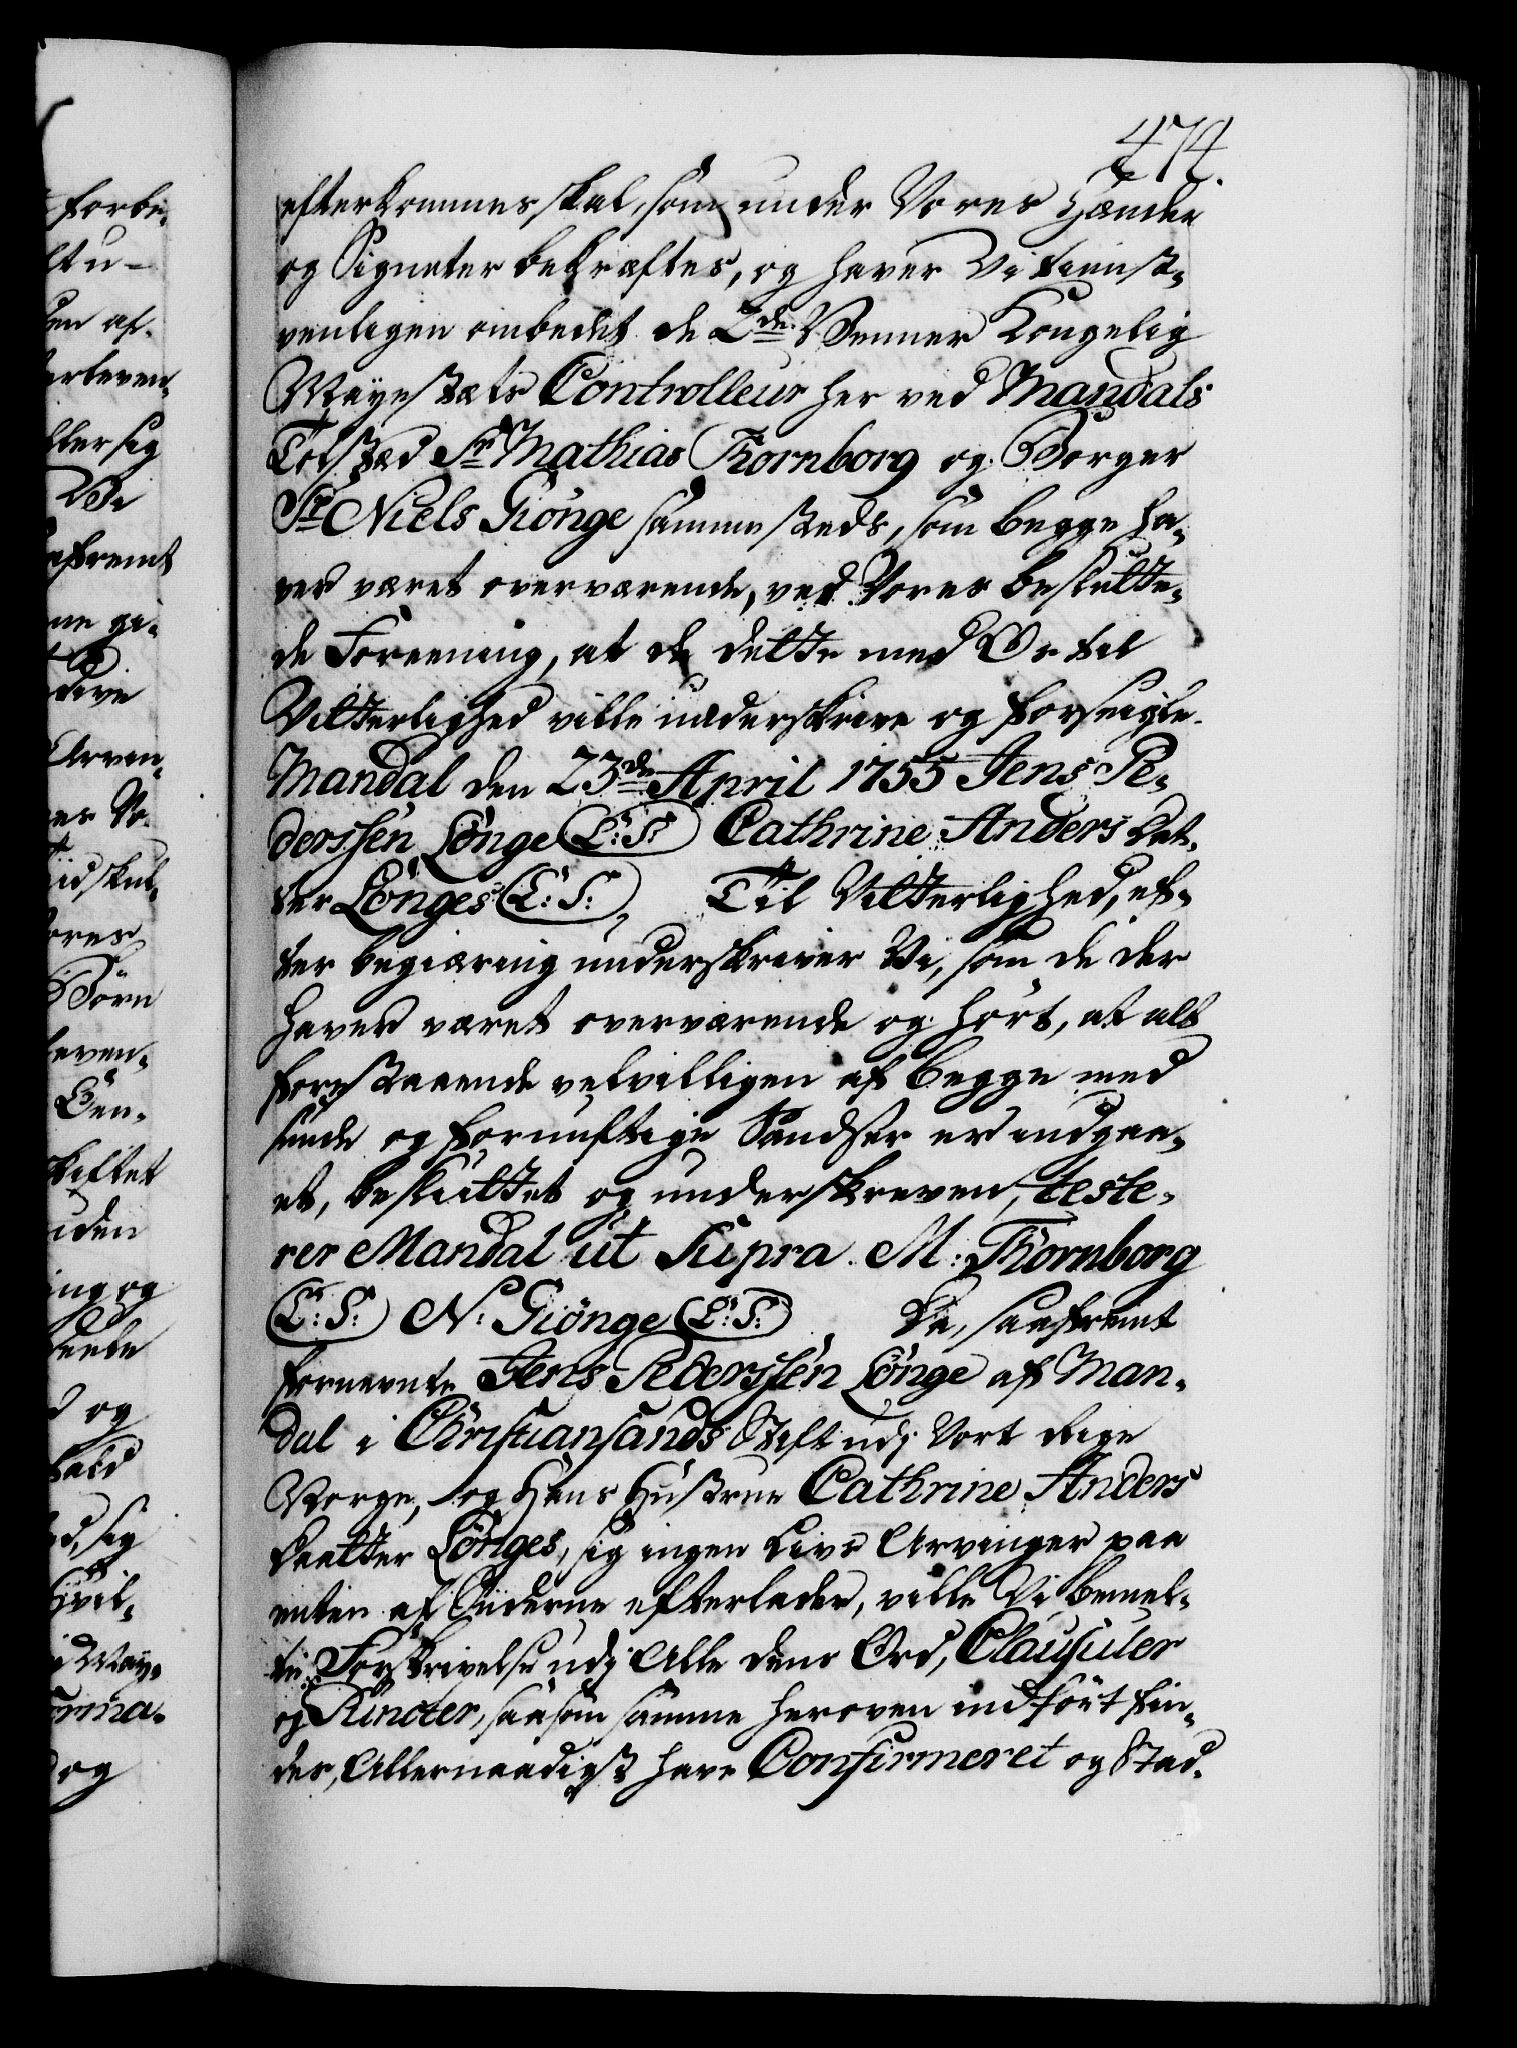 474.
efterkommes skal, som under Vores Hænder
og Signeter bekræftes, og haver Vi tienst-
venligen ombedet de 2de Venner Kongelig
Mayestæts Controlleur her ved Mandals
Tolsted Sr Mathias Thornborg og Borger
Sr Niels Giönge sammesteds, som begge ha-
ver været overværende, ved Vores beslutte-
de Foreening, at de dette med Os til
Vitterlighed ville underskrive og forseigle.
Mandal den 23de April 1755 Jens Pe-
derssen Lönge (L:S:) Cathrine Anders Dat-
ter Lönges (L:S:) Til Vitterlighed, ef-
ter begiæring underskriver Vi, som de der
haver været overværende og hört, at alt
forestaaende velvilligen af begge med
sunde og fornuftige Sandser er indgaa-
et, besluttet og underskreven, teste-
rer Mandal ut Supra. M: Thornborg
(L:S:) N: Giönge (L:S:) Da, saafremt
fornevnte Jens Pederssen Lönge af Man-
dal i Christiansands Stift udj Vort Rige
Norge, og Hans Hustrue Cathrine Anders
Daatter Lönges, sig ingen Livs Arvinger paa
enten af Siiderne efterlader, ville Vi bemel-
te Forskrivelse udj Alle dens Ord, Clausuler
og Puncter, saasom samme heroven indfört fin-
des, Allernaadigst have Confirmeret og Stad-